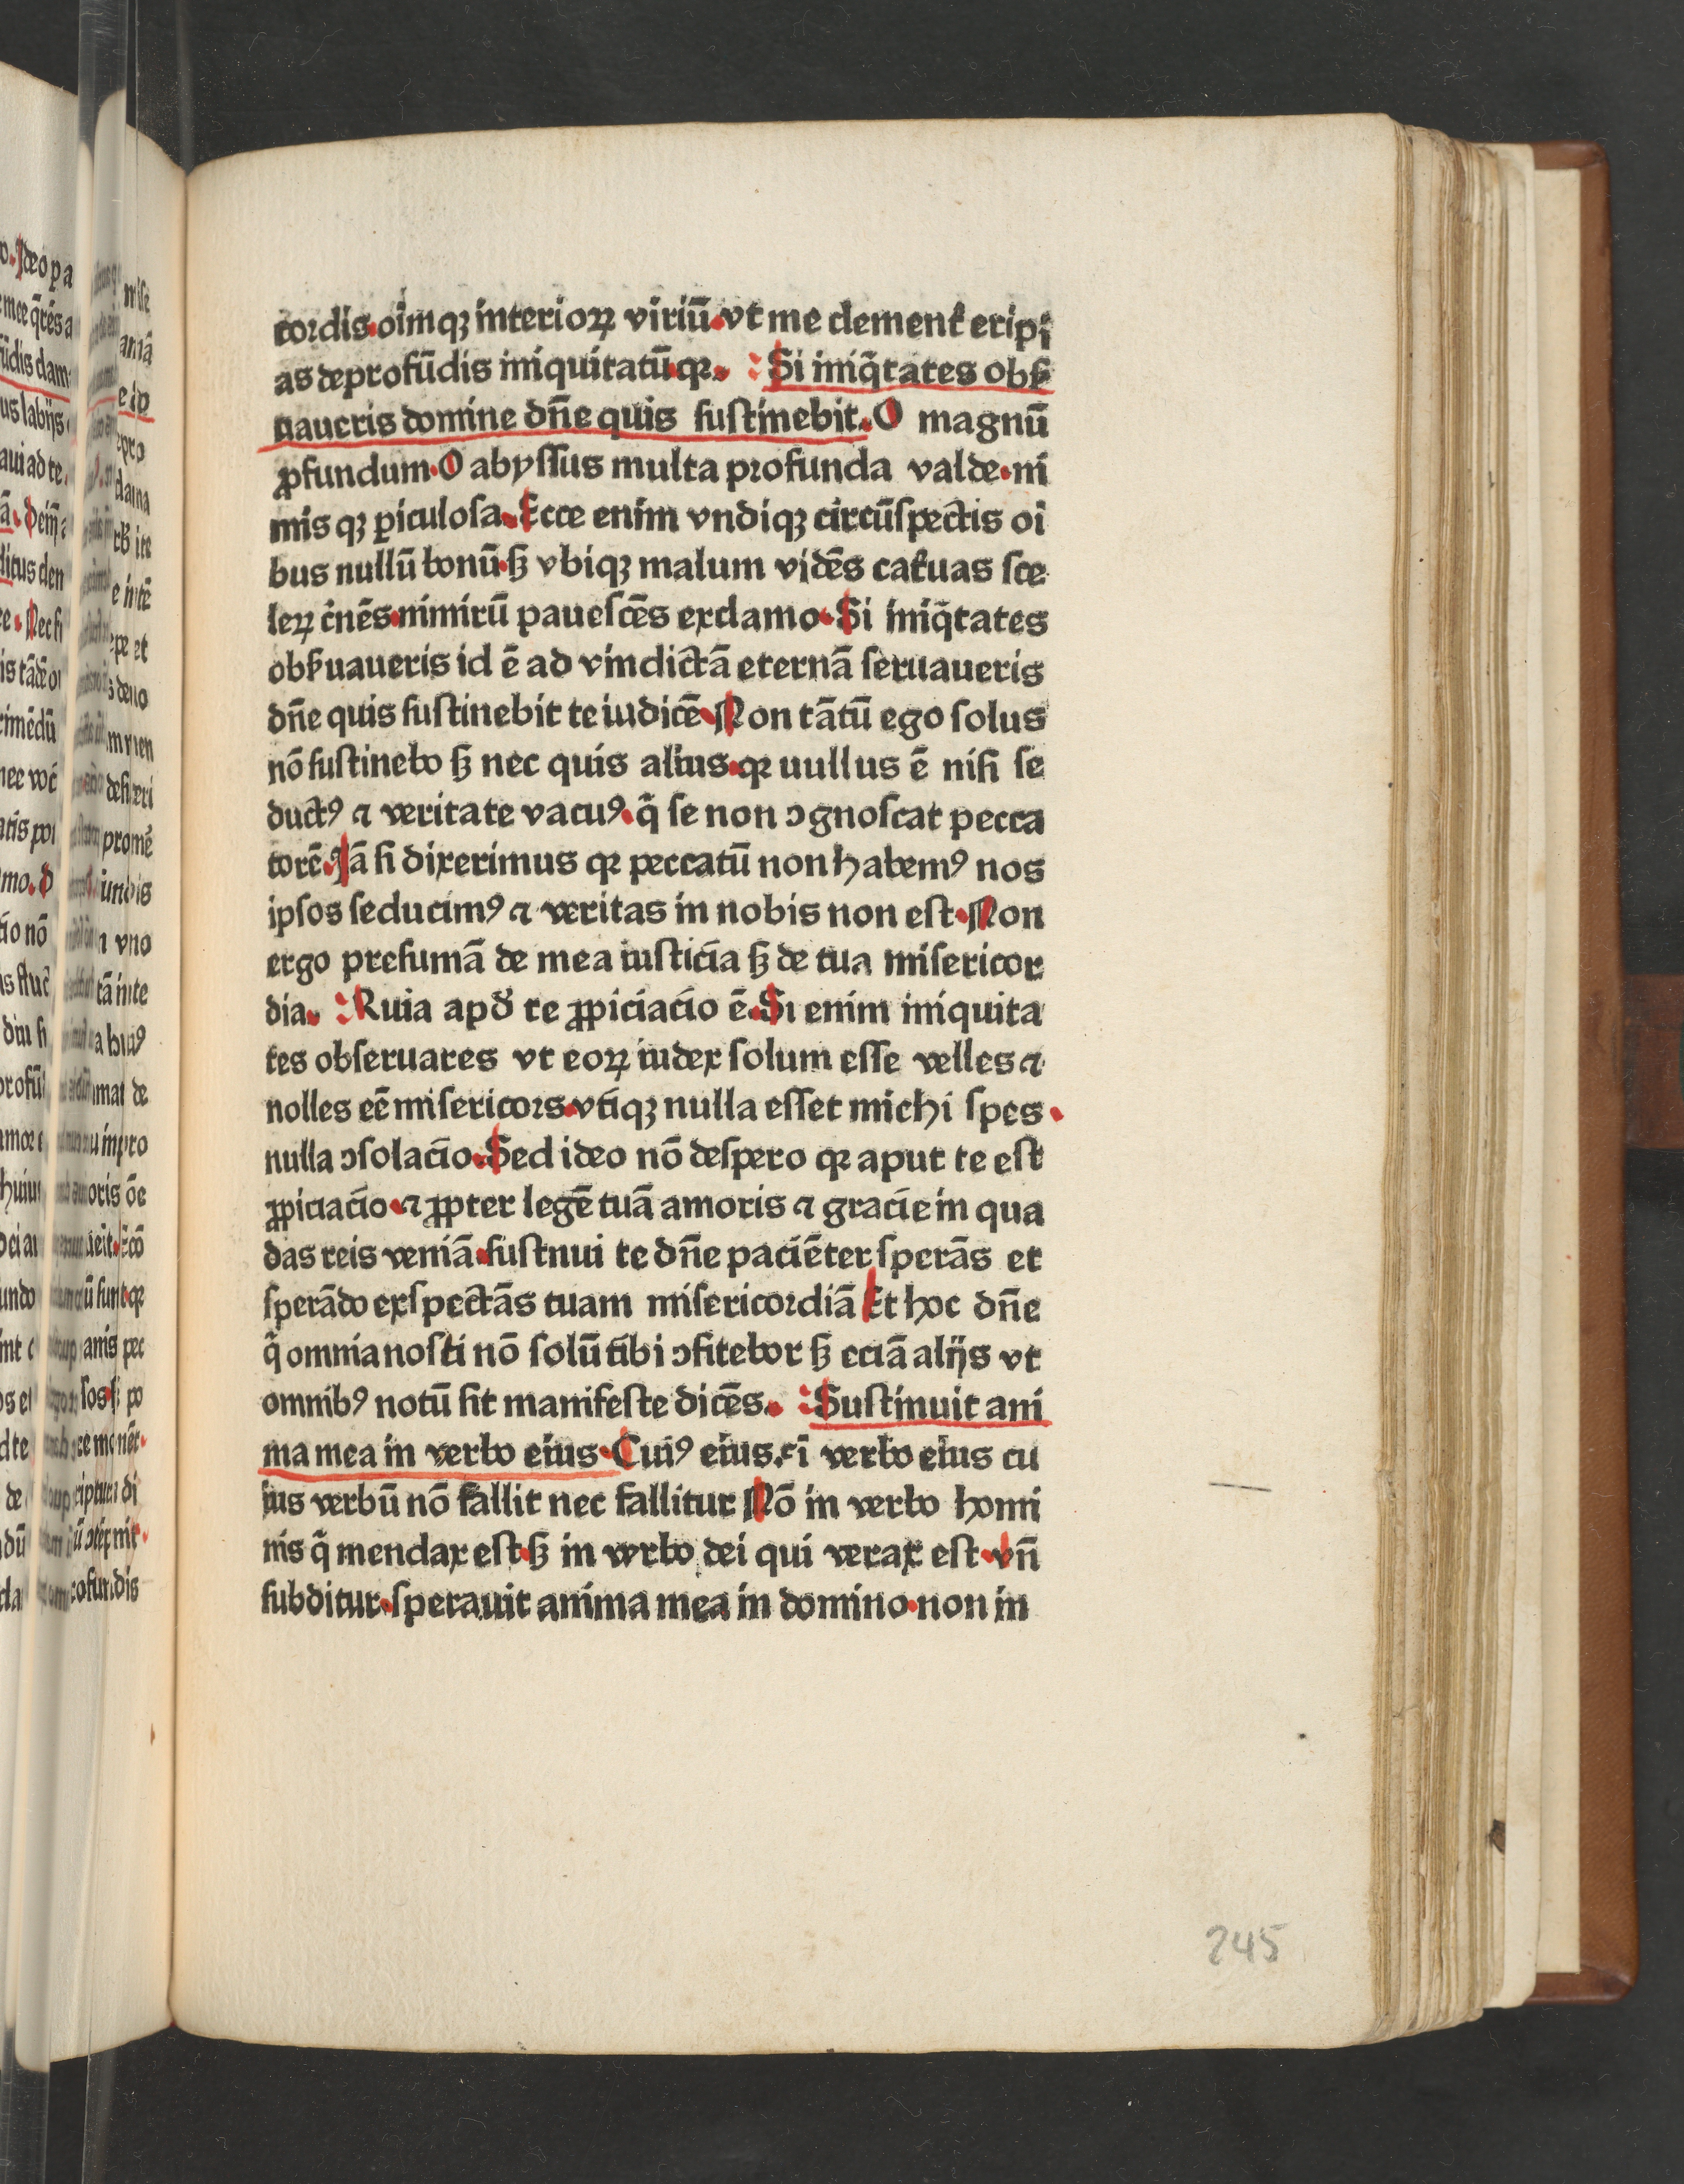 cordis.oim̄qꝫ interioꝝ viriū.vt me clement̛ eripi
as deprofūdis iniquitatū.qꝛ. Si iniq̄tates obẜ
uaueris domine dn̄e quis ſuſtinebit. O magnū
ꝓfundum.O abyſſus multa profunda valde.ni
mis qꝫ ꝑiculoſa.Ecce enim vndiqꝫ circūſpectis oi
bus nullū bonū.ſꝫ vbiqꝫ malum vidēs cat̛uas ſce
leꝝ c̛nēs.nimirū paueſcēs exclamo.Si iniq̄tates
obẜuaueris id ē ad vindictā eternā ſeruaueris
dn̄e quis ſuſtinebit te iudicē.Non tātū ego ſolus
nō ſuſtinebo ſꝫ nec quis alius.qꝛ uullus ē niſi ſe
ductꝰ ⁊ veritate vacuꝰ.q̄ ſe non ↄgnoſcat pecca
torē.Nā ſi dixerimus qꝛ peccatū non habemꝰ nos
ipſos ſeducimꝰ ⁊ veritas in nobis non eſt.Non
ergo preſumā de mea iuſticia ſꝫ de tua miſericor
dia. Ruia apud̛ te ꝓpiciacio ē.Si enim iniquita
tes obſeruares vt eoꝝ iudex ſolum eſſe velles ⁊
nolles eē miſericors.vtiqꝫ nulla eſſet michi ſpes.
nulla ↄſolacio.Sed ideo nō deſpero qꝛ aput te eſt
ꝓpiciacio.⁊ ꝓpter legē tuā amoris ⁊ gracie in qua
das reis veniā.ſuſtnui te dn̄e paciēter ſperās et
ſperādo exſpectās tuam miſericordiā Et hoc dn̄e
q̄ omnia noſti nō ſolū tibi ↄfitebor ſꝫ eciā alijs vt
omnibꝰ notū ſit manifeſte dicēs. Suſtinuit ani
ma mea in verbo eius.Cuiꝰ eius.ſi verbo eius cu
ius verbū nō fallit nec fallitur Nō in verbo homi
nis q̄ mendax eſt.ſꝫ in verbo dei qui verax eſt.vn̄
ſubditur.ſperauit anima mea in domino.non in
245